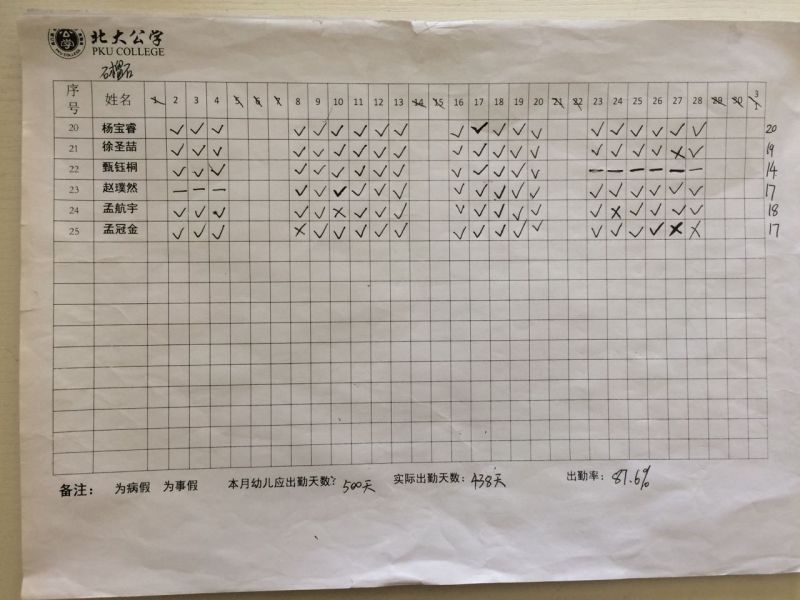 北大公学
PKU COLLEGE
石榴石
序号 姓名 1 2 3 4 5 6 7 8 9 10 11 12 13 14 15 16 17 18 19 20 21 22 23 24 25 26 27 28 29 30 31
20 杨宝睿 ✓ ✓ ✓ ✓ ✓ ✓ ✓ ✓ ✓ ✓ ✓ ✓ ✓ ✓ ✓ ✓ ✓ ✓ ✓ ✓ 20
21 徐圣喆 ✓ ✓ ✓ ✓ ✓ ✓ ✓ ✓ ✓ ✓ ✓ ✓ ✓ ✓ ✓ ✓ ✓ ✓ × ✓ 19
22 甄钰桐 ✓ ✓ ✓ ✓ ✓ ✓ ✓ ✓ ✓ ✓ ✓ ✓ ✓ ✓ — — — — — — 14
23 赵璞然 — — — ✓ ✓ ✓ ✓ ✓ ✓ ✓ ✓ ✓ ✓ ✓ ✓ ✓ ✓ ✓ ✓ ✓ 17
24 孟航宇 ✓ ✓ ✓ ✓ ✓ × ✓ ✓ ✓ ✓ ✓ ✓ ✓ ✓ ✓ × ✓ ✓ ✓ ✓ 18
25 孟冠金 ✓ ✓ ✓ × ✓ ✓ ✓ ✓ ✓ ✓ ✓ ✓ ✓ ✓ ✓ ✓ ✓ ✓ × × 17
备注： 为病假 为事假 本月幼儿应出勤天数：500天 实际出勤天数：438天 出勤率：87.6%